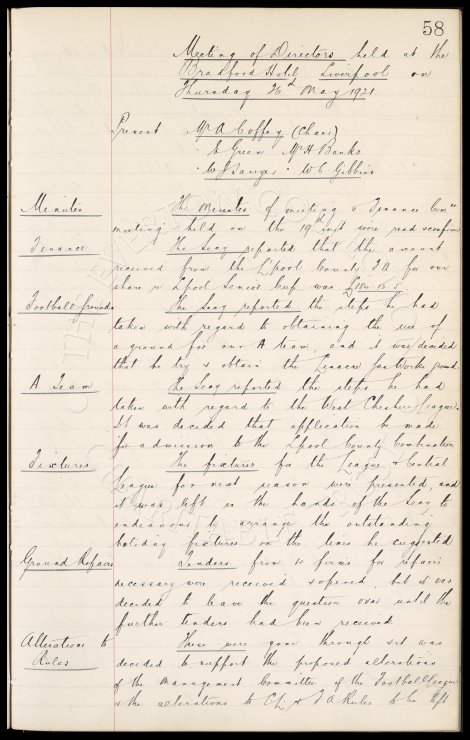 58
Meeting of Directors held at the
Bradford Hotel, Liverpool on
Thursday 26th May 1921
Present Mr A Coffey (Chair)
" E Green Mr H Banks
" W J Sawyer " W C Gibbins
Minutes The Minutes of meeting & Finance Comee
meeting held on the 19th inst were read & confirmed
Finance The Secy reported that the amount
received from the L'pool County F.A. for our
share in L'pool Senior Cup was £184.12.5.
Football Grounds The Secy reported the steps he had
taken with regard to obtaining the use of
a ground for our A team, and it was decided
that he try & obtain the Linacre Gas Works ground.
A Team The Secy reported the steps he had
taken with regard to the West Cheshire League.
It was decided that application be made
for admission to the L'pool County Combination
Fixtures The fixtures for the League & Central
League for next season were presented, and
it was left in the hands of the Secy to
endeavour to arrange the outstanding
holiday fixtures on the lines he suggested
Ground Repairs Tenders from 4 firms for repairs
necessary were received & opened, but it was
decided to leave the question over until the
further tenders had been received
Alterations to Rules These were gone through & it was
decided to support the proposed alterations
of the Management Committee of the Football League
& the alterations to C.L. & F A Rules to be left